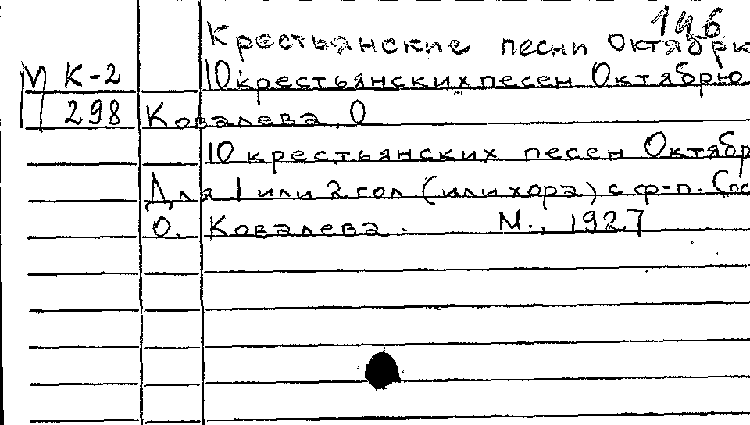 146
Крестьянские песни Октябрю
М К-2 10 крестьянских песен Октябрю
298 Ковалева, О
10 крестьянских песен Октябр
Для 1 или 2 гол (или хора) с ф-п. Сос
О. Ковалева. М., 1927